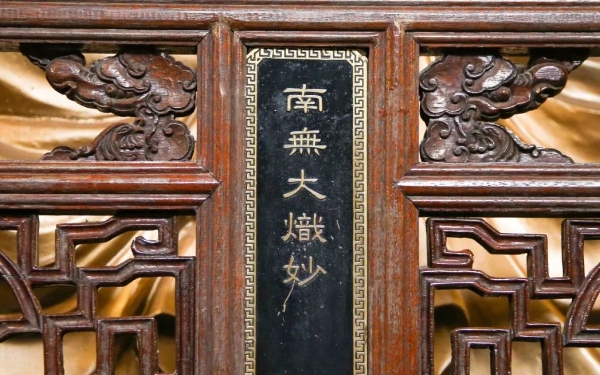 南無大熾妙